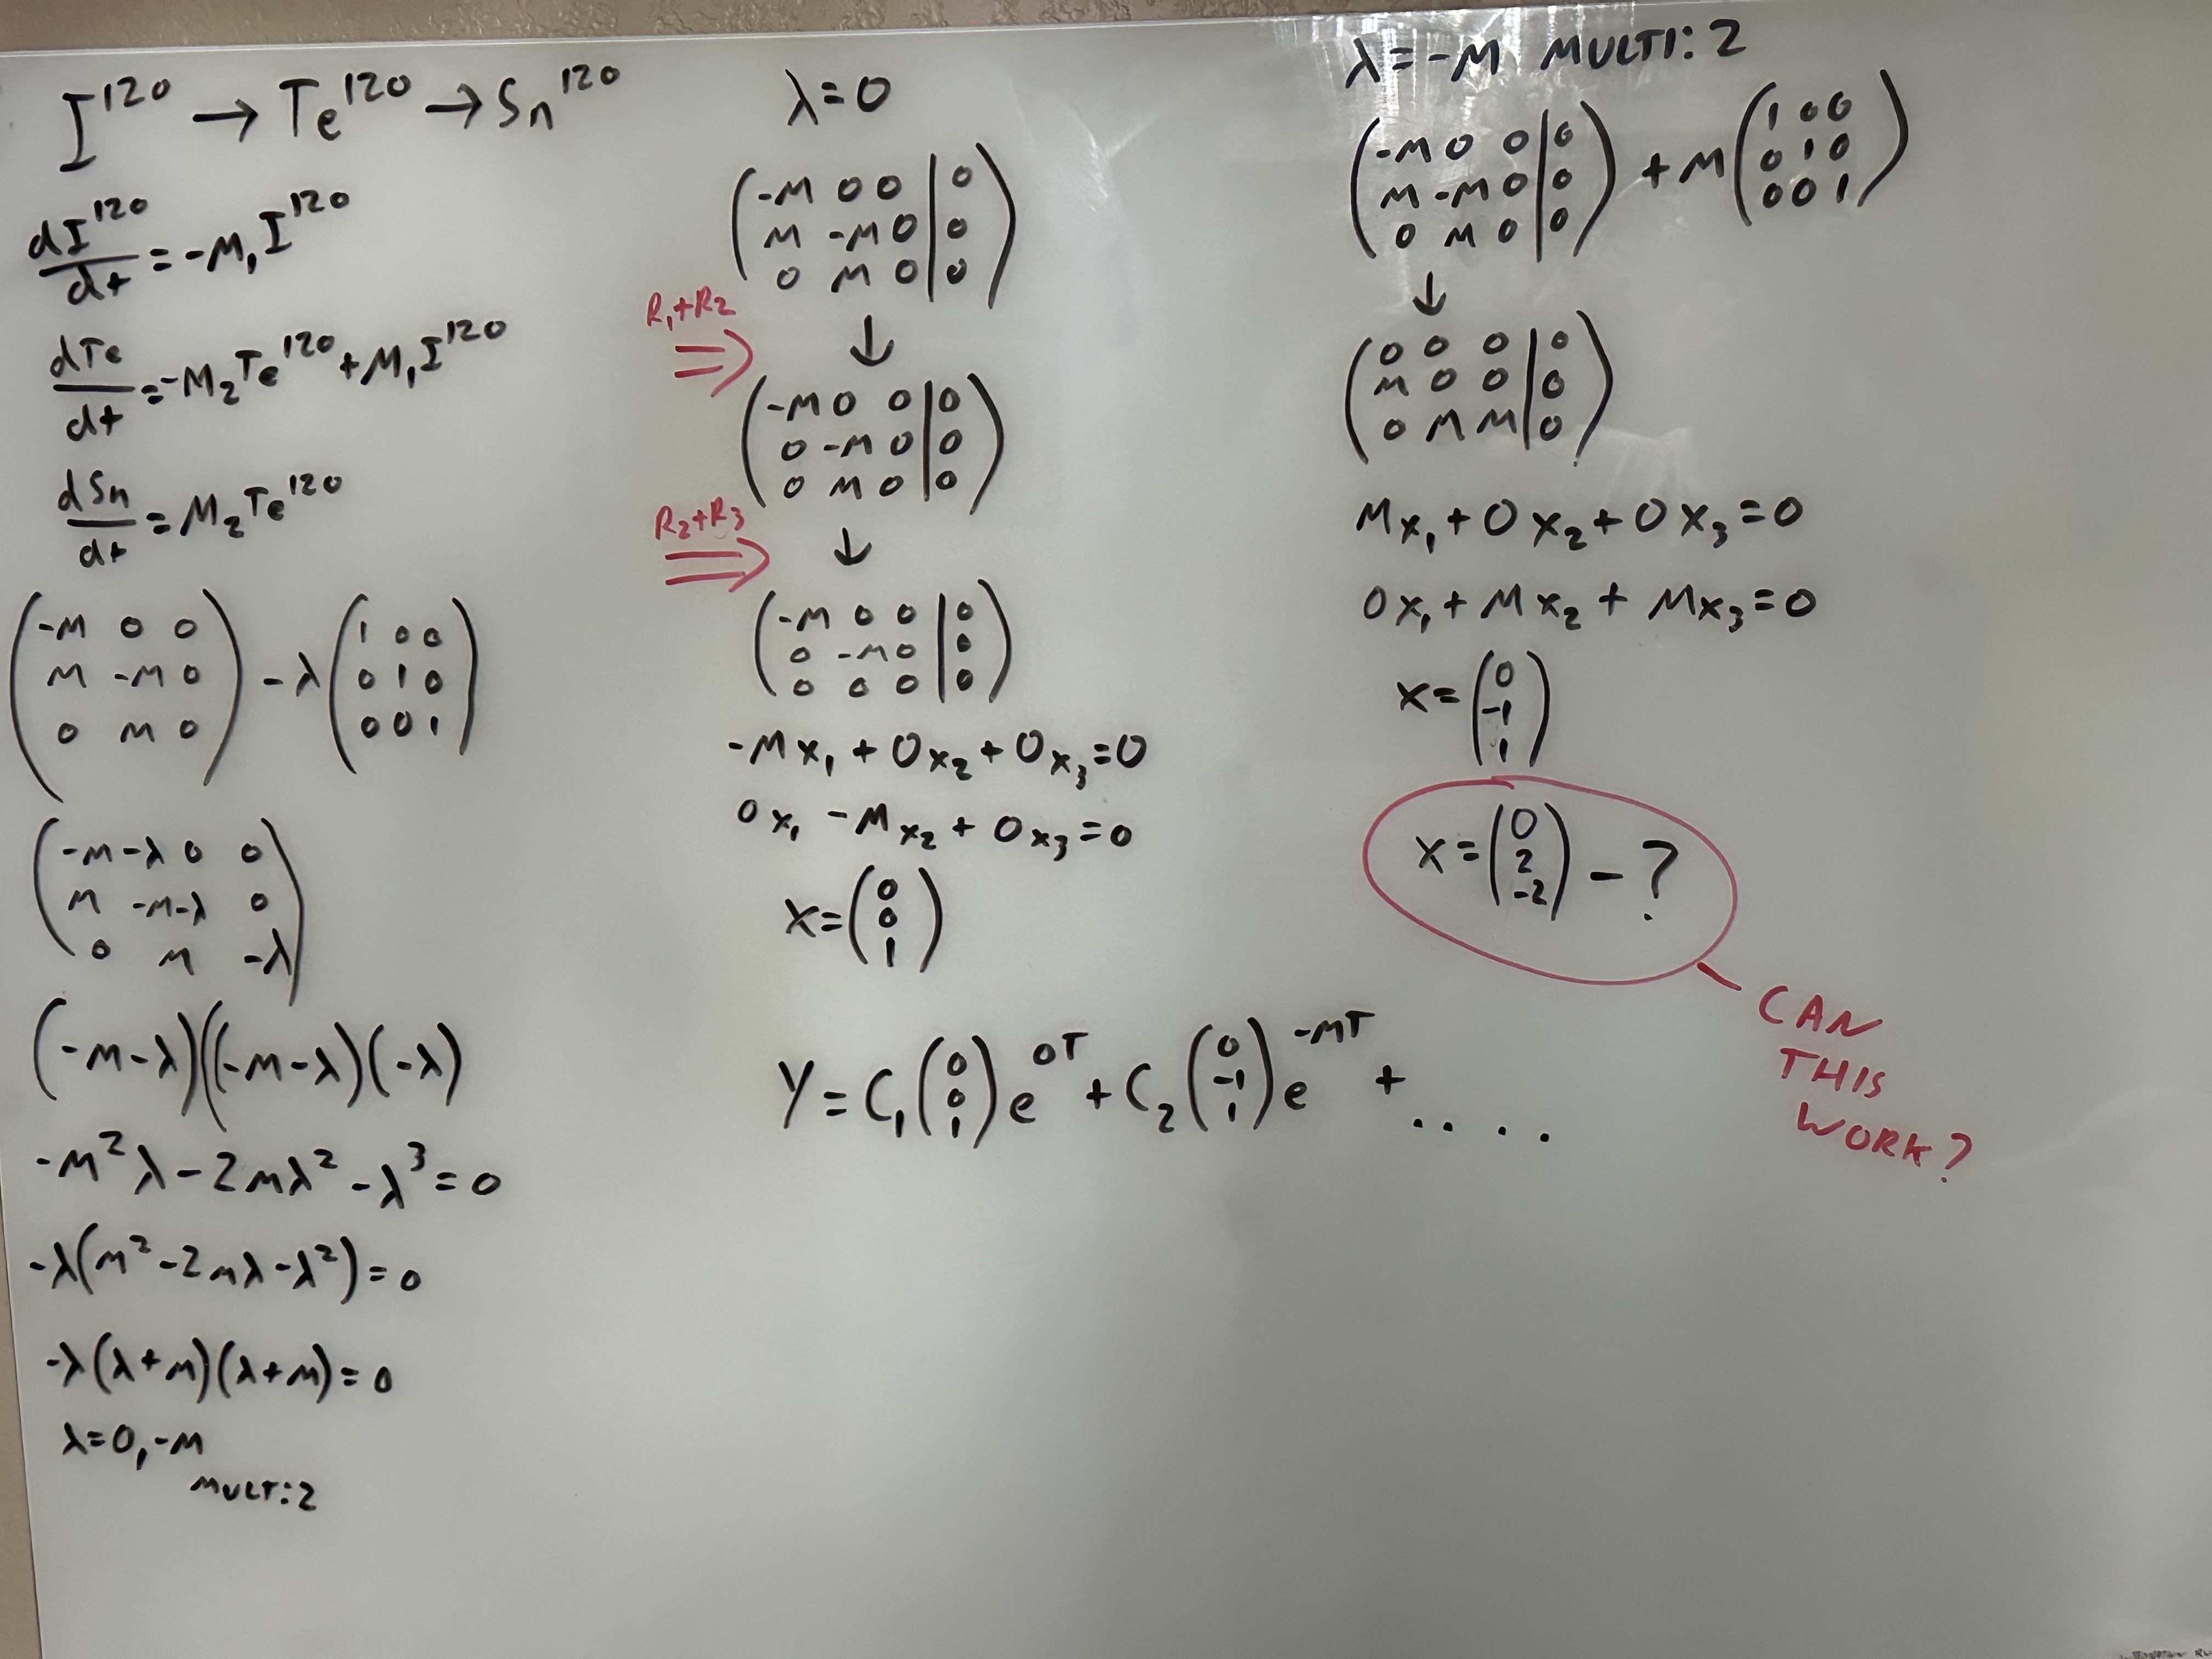 I¹²⁰ → Te¹²⁰ → Sn¹²⁰
dI¹²⁰/dt = -M₁I¹²⁰
dTe/dt = -M₂Te¹²⁰ + M₁I¹²⁰
dSn/dt = M₂Te¹²⁰
(-M 0 0
M -M 0
0 M 0) - λ (1 0 0
0 1 0
0 0 1)
(-M-λ 0 0
M -M-λ 0
0 M -λ)
(-M-λ)((-M-λ)(-λ)
-M²λ - 2Mλ² - λ³ = 0
-λ(M² - 2Mλ - λ²) = 0
-λ(λ+M)(λ+M) = 0
λ=0, -M
MULT: 2
λ=0
(-M 0 0 | 0
M -M 0 | 0
0 M 0 | 0)
R₁+R₂
⇒ ↓
(-M 0 0 | 0
0 -M 0 | 0
0 M 0 | 0)
R₂+R₃
⇒ ↓
(-M 0 0 | 0
0 -M 0 | 0
0 0 0 | 0)
-Mx₁ + 0x₂ + 0x₃ = 0
0x₁ - Mx₂ + 0x₃ = 0
x = (0
0
1)
λ=-M MULTI: 2
(-M 0 0 | 0
M -M 0 | 0
0 M 0 | 0) + M (1 0 0
0 1 0
0 0 1)
↓
(0 0 0 | 0
M 0 0 | 0
0 M M | 0)
Mx₁ + 0x₂ + 0x₃ = 0
0x₁ + Mx₂ + Mx₃ = 0
x = (0
-1
1)
x = (0
2
-2) - ?
CAN
THIS
WORK?
Y = C₁ (0
0
1) e^0T + C₂ (0
-1
1) e^-MT + ....